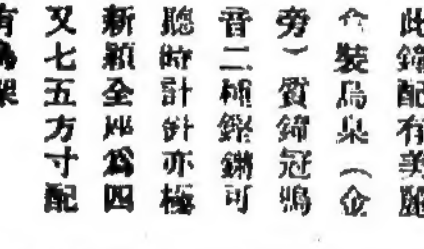 此鐘配有美麗
裝鳥巢（金
旁）質鐘冠鳴
音二種鏗鏘可
聽時計針亦極
新穎全座爲四
又七五方寸配
有